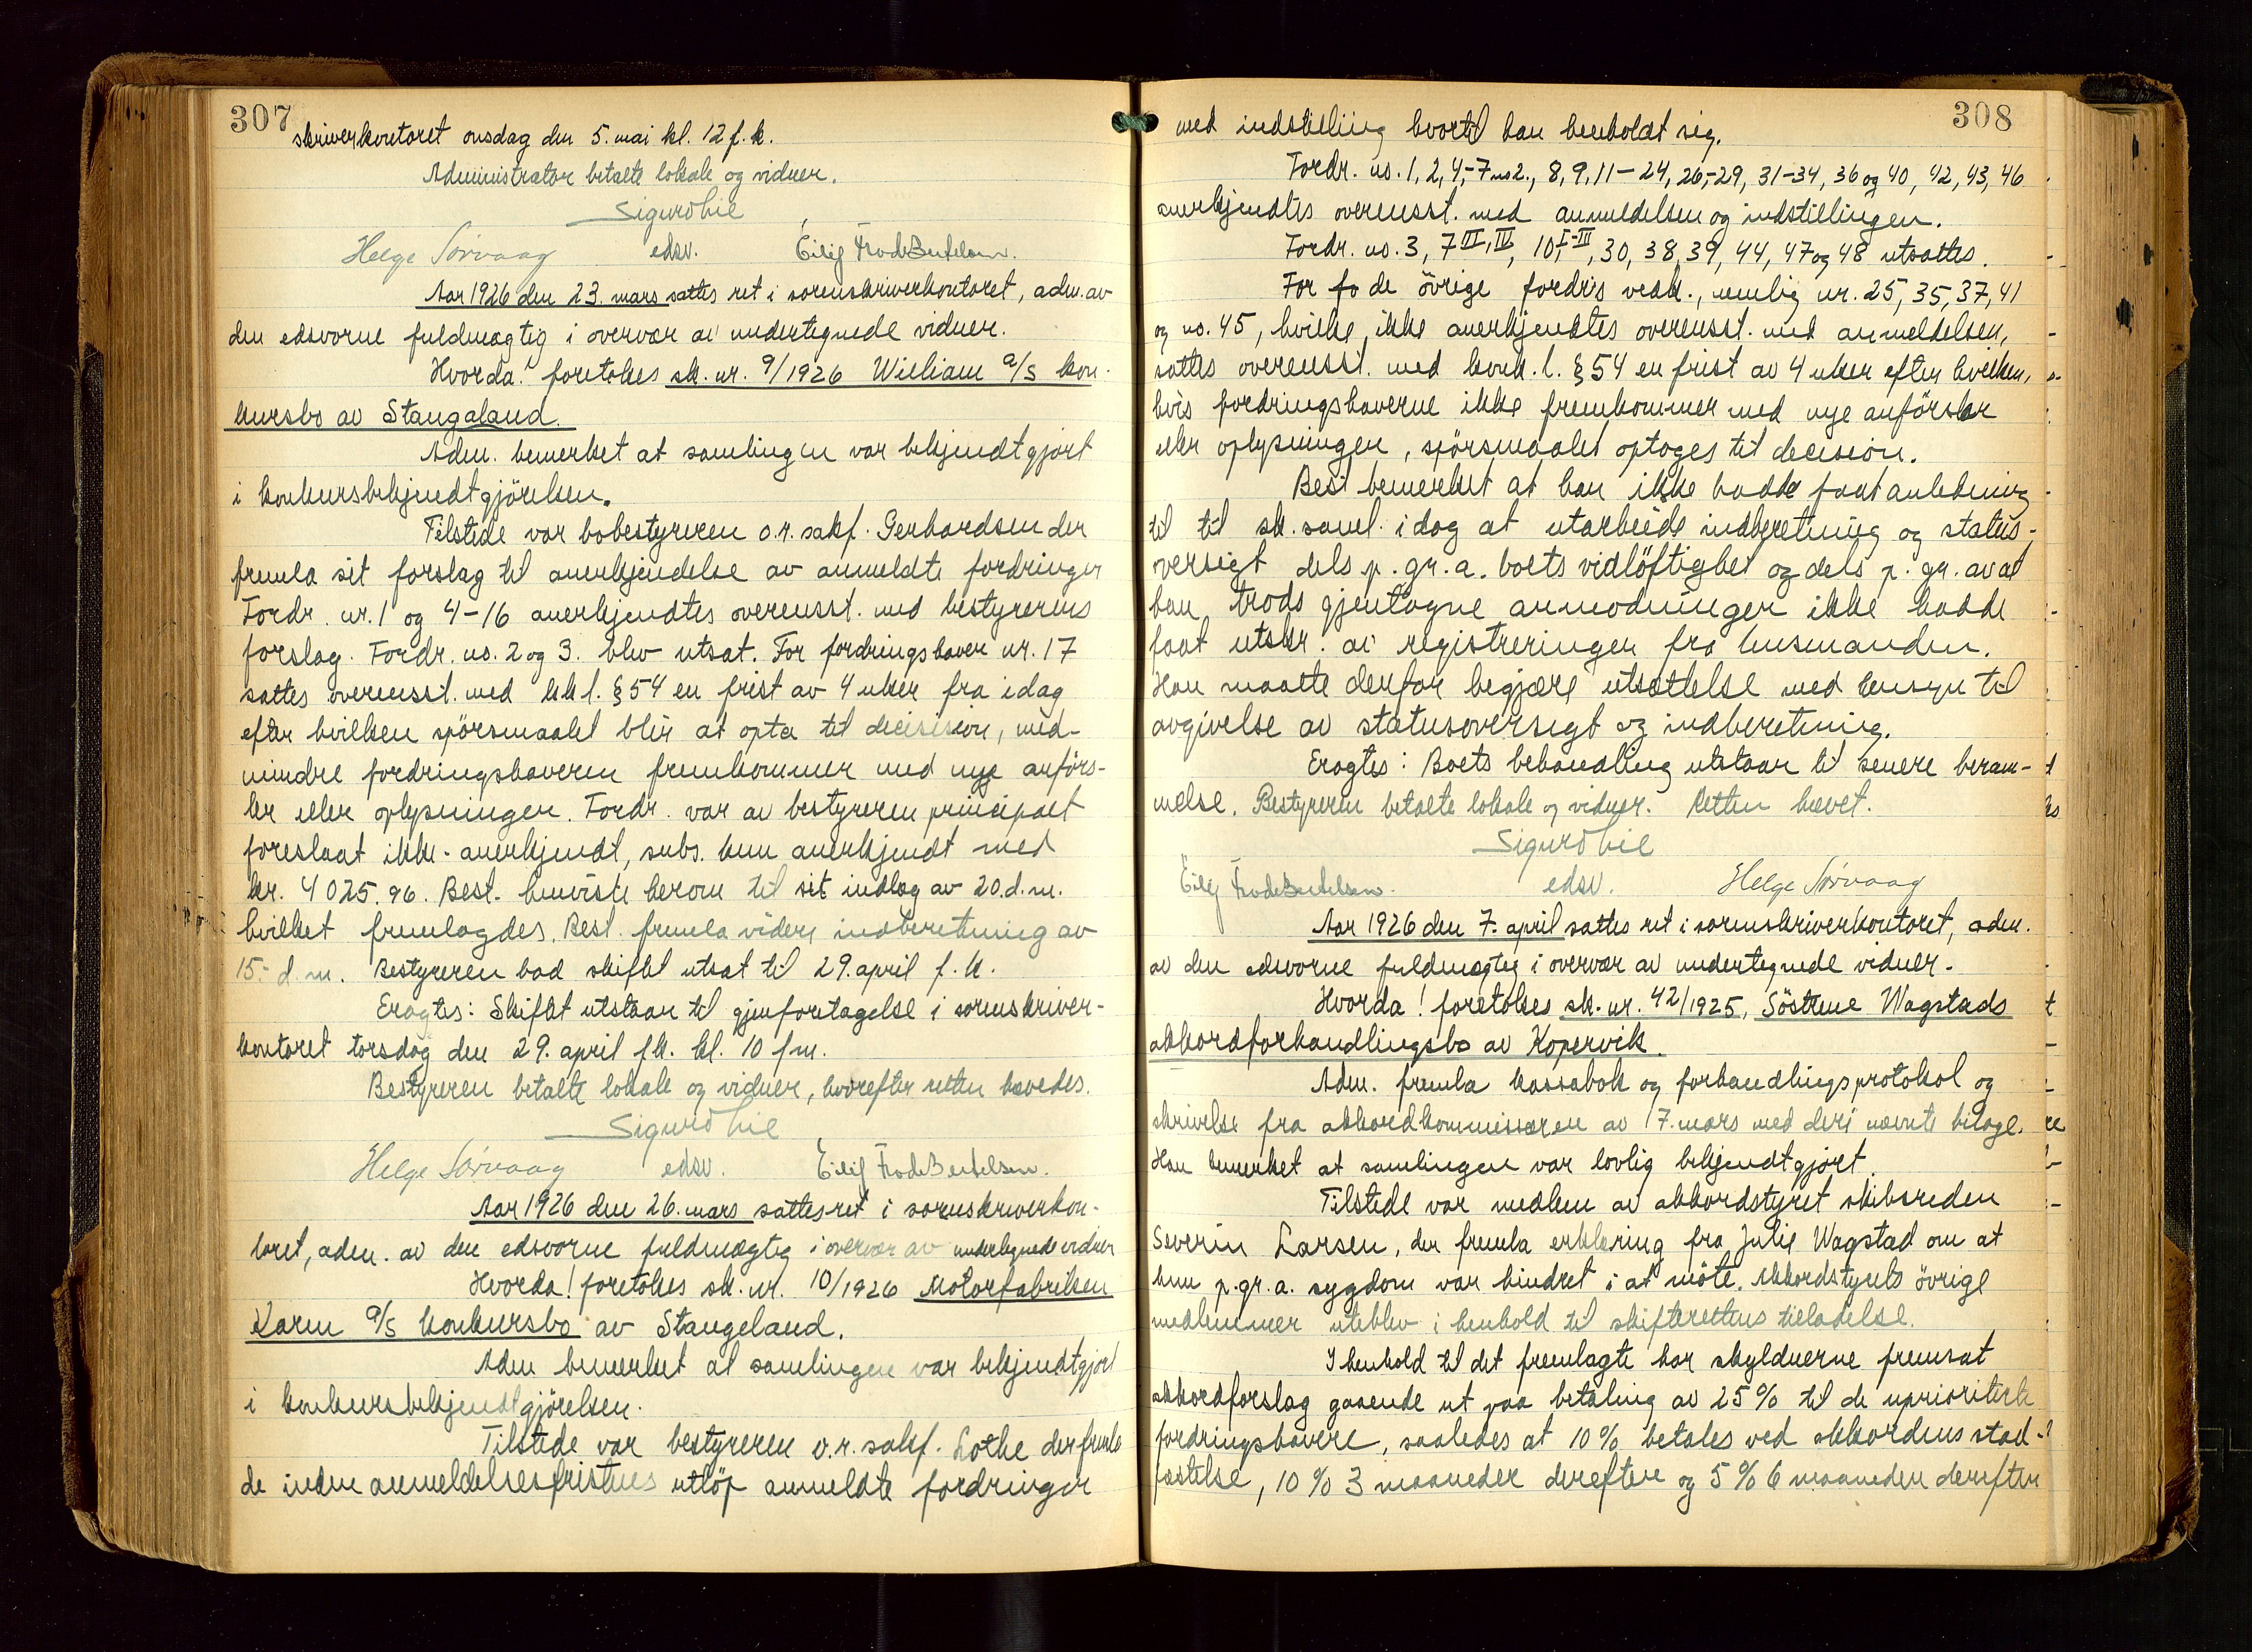 307
skriverkontoret onsdag den 5. mai kl. 12 f.k.
Administrator betalte lokale og vidner.
Sigurd Lie
Helge Sørvaag edsv. Eilif Frode Bertelsen.
Aar 1926 den 23. mars sattes ret i sorenskriverkontoret, adm. av
den edsvorne fuldmægtig i overvær av undertegnede vidner.
Hvorda! foretokes sk. nr. 9/1926 William A/S kon-
kursbo av Stangaland.
Adm. bemerket at samlingen var bekjendtgjort
i konkursbekjendtgjörelsen.
Tilstede var bobestyreren o.r.sakf. Gerhardsen der
fremla sit forslag til anerkjendelse av anmeldte fordringer
Fordr. nr. 1 og 4-16 anerkjendtes overensst. med bestyrerens
forslag. Fordr. no. 2 og 3. blev utsat. For fordringshaver nr. 17
sattes overensst. med kk l. § 54 en frist av 4 uker fra idag
efter hvilken spörsmaalet blir at opta til decisision, med-
mindre fordringshaveren fremkommer med nye anförs-
ler eller oplysninger. Fordr. var av bestyreren principalt
foreslaat ikke-anerkjendt, subs. kun anerkjendt med
kr. 4025.96. Best. henviste herom til sit indlæg av 20.d.m.
hvilket fremlagdes. Best. fremla videre indberetning av
15.- d.m. Bestyreren bad skiftet utsat til 29. april f.k.
Eragtes: Skiftet utstaar til gjenforetagelse i sorenskriver-
kontoret torsdag den 29. april f.k. kl. 10 f.m.
Bestyreren betalte lokale og vidner, hvorefter retten hævedes.
Sigurd Lie
Helge Sørvaag edsv. Eilif Frode Bertelsen.
Aar 1926 den 26. mars sattes ret i sorenskriverkon-
toret, adm. av den edsvorne fuldmægtig i overvær av undertegnede vidner
Hvorda! foretokes sk. nr. 10/1926 Motorfabrikken
Karm A/S konkursbo av Stangeland.
Adm bemerket at samlingen var bekjendtgjort
i konkursbekjendtgjörelsen.
Tilstede var bestyreren o.r. sakf. Lothe der fremla
de inden anmeldelsesfristens utlöp anmeldte fordringer
308
med indstilling hvortil han henholdt sig.
Fordr. no. 1, 2, 4,-7 no 2., 8, 9, 11-24, 26,-29, 31-34, 36 og 40, 42, 43, 46
anerkjendtes overensst. med anmeldelsen og indstillingen.
Fordr. no. 3, 7 III, IV, 10, I-III, 30, 38, 39, 44, 47 og 48 utsattes.
For de övrige fordr's vedk., nemlig nr. 25, 35, 37, 41
og no. 45, hvilke ikke anerkjendtes overensst. med anmeldelsen,
sattes overensst. med konk. l. § 54 en frist av 4 uker efter hvilken,
hvis fordringshaverne ikke fremkommer med nye anförsler
eller oplysninger, spörsmaalet optages til decision.
Best bemerket at han ikke hadde faat anledning
til til sk. saml. idag at utarbeide indberetning og status-
oversigt dels p. gr. a. boets vidlöftighet og dels p. gr. av at
han trods gjentagne anmodninger ikke hadde
faat utskr. av registreringen fra lensmanden.
Han maatte derfor begjære utsættelse med hensyn til
avgivelse av statusoversigt og indberetning.
Eragtes: Boets behandling utstaar til senere beram-
melse. Bestyreren betalte lokale og vidner. Retten hævet.
Sigurd Lie
Eilif Frode Bertelsen. edsv. Helge Sørvaag
Aar 1926 den 7. april sattes ret i sorenskriverkontoret, adm.
av den edsvorne fuldmægtig i overvær av undertegnede vidner.
Hvorda! foretokes sk. nr. 42/1925, Söstrene Wagstads
akkordforhandlingsbo av Kopervik.
Adm. fremla kassabok og forhandlingsprotokol og
skrivelse fra akkordkommissæren av 17. mars med deri nævnte bilage.
Han bemerket at samlingen var lovlig bekjendtgjort.
Tilstede var medlem av akkordstyret skibsreder
Severin Larsen, der fremla erklæring fra Julie Wagstad om at
hun p. gr. a. sygdom var hindret i at möte. Akkordstyrets övrige
medlemmer uteblev i henhold til skifterettens tilladelse.
I henhold til det fremlagte har skyldnerne fremsat
akkordforslag gaaende ut paa betaling av 25% til de uprioriterte
fordringshavere, saaledes at 10% betales ved akkordens stad-
fæstelse, 10% 3 maaneder derefter og 5% 6 maaneder derefter